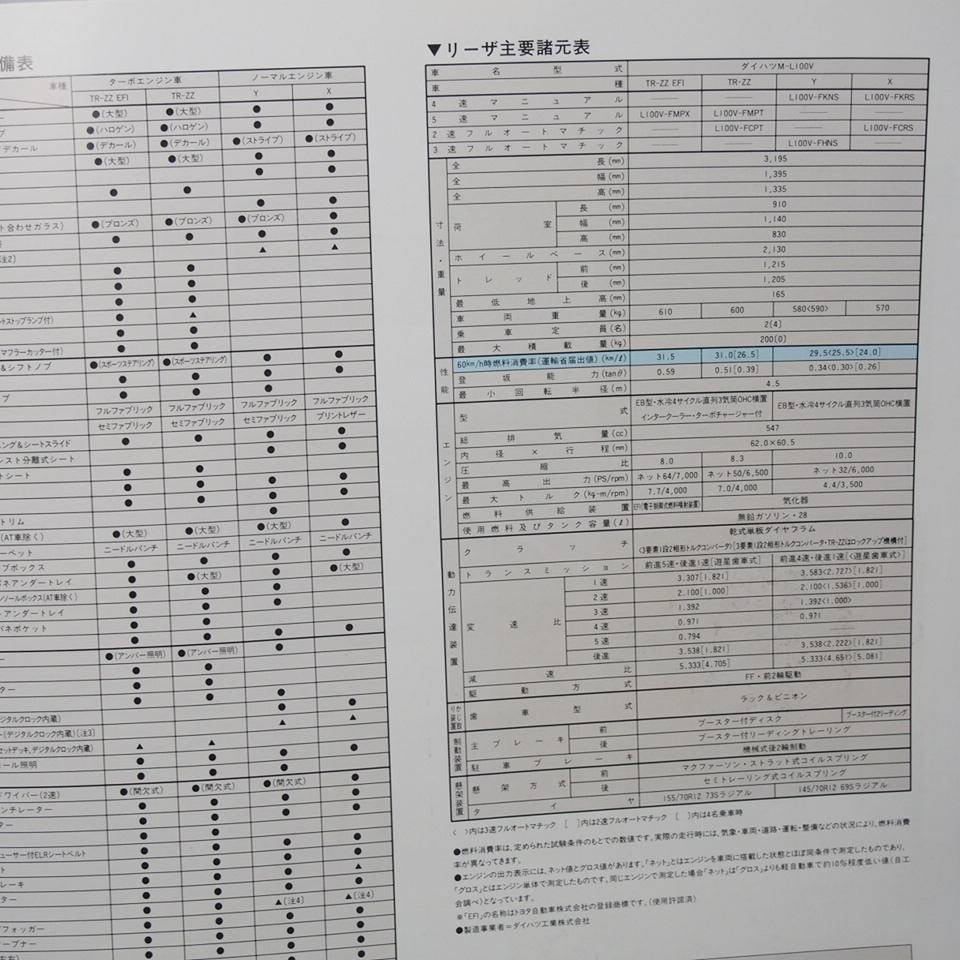 備表
車種
ターボエンジン車 ノーマルエンジン車
TR-ZZ EFI TR-ZZ Y X
●(大型) ●(大型) ● ●
●(ハロゲン) ●(ハロゲン) ● ●
デカール ●(デカール) ●(デカール) ●(ストライプ) ●(ストライプ)
●(大型) ●(大型) ● ●
● ●
ト合わせガラス) ●(ブロンズ) ●(ブロンズ) ●(ブロンズ) ●
[注2]
トストップランプ付)
マフラーカッター付)
&シフトノブ ●(スポーツステアリング) ●(スポーツステアリング) ● ●
フルファブリック フルファブリック フルファブリック フルファブリック
セミファブリック セミファブリック セミファブリック プリントレザー
ング&シートスライド
レスト分離式シート
トシート
トリム
(AT車除く) ●(大型) ●(大型) ●(大型) ●
ーペット ニードルパンチ ニードルパンチ ニードルパンチ ニードルパンチ
ブボックス
ネアンダートレイ ● ●(大型) ● ●(大型)
ンソールボックス(AT車除く)
トアンダートレイ
バネポケット
●(アンバー照明) ●(アンバー照明)
ター
ジタルクロック内蔵)
ー(デジタルクロック内蔵)[注3]
セットデッキ,デジタルクロック内蔵)
ール照明
ワイパー(2速) ●(間欠式) ●(間欠式) ●(間欠式) ●
ンチレーター
ューサー付ELRシートベルト
レーキ
ター ● ● ▲[注4] ▲[注4]
フォッガー
ープナー
▼リーザ主要諸元表
車名型式 ダイハツM-L100V
車種 TR-ZZ EFI TR-ZZ Y X
4速マニュアル ── ── L100V-FKNS L100V-FKRS
5速マニュアル L100V-FMPX L100V-FMPT ── ──
2速フルオートマチック ── L100V-FCPT ── L100V-FCRS
3速フルオートマチック ── ── L100V-FHNS ──
寸法・重量
全長(mm) 3,195
全幅(mm) 1,395
全高(mm) 1,335
荷室 長(mm) 910
幅(mm) 1,140
高(mm) 830
ホイールベース(mm) 2,130
トレッド 前(mm) 1,215
後(mm) 1,205
最低地上高(mm) 165
車両重量(kg) 610 600 580<590> 570
乗車定員(名) 2(4)
最大積載量(kg) 200[0]
性能
60km/h時燃料消費率(運輸省届出値)(km/ℓ) 31.5 31.0[26.5] 29.5<25.5>[24.0]
登坂能力(tanθ) 0.59 0.51[0.39] 0.34<0.30>[0.26]
最小回転半径(m) 4.5
エンジン
型式 EB型・水冷4サイクル直列3気筒OHC横置 インタークーラー・ターボチャージャー付 EB型・水冷4サイクル直列3気筒OHC横置
総排気量(cc) 547
内径×行程(mm) 62.0×60.5
圧縮比 8.0 8.3 10.0
最高出力(PS/rpm) ネット64/7,000 ネット50/6,500 ネット32/6,000
最大トルク(kg-m/rpm) 7.7/4,000 7.0/4,000 4.4/3,500
燃料供給装置 EFI(電子制御式燃料噴射装置) 気化器
使用燃料及びタンク容量(ℓ) 無鉛ガソリン・28
動力伝達装置
クラッチ 乾式単板ダイヤフラム
<3要素1段2相形トルクコンバータ>[3要素1段2相形トルクコンバータ・TR-ZZはロックアップ機構付]
トランスミッション 前進5速・後進1速[遊星歯車式] 前進4速・後進1速[<遊星歯車式>]
変速比 1速 3.307[1.821] 3.583<2.727>[1.821]
2速 2.100[1.000] 2.100<1.536>[1.000]
3速 1.392 1.392<1.000>
4速 0.971 0.971
5速 0.794 ──
後進 3.538[1.821] 3.538<2.222>[1.821]
減速比 5.333[4.705] 5.333<4.651>[5.081]
駆動方式 FF・前2輪駆動
かじ取り装置 歯車型式 ラック&ピニオン
制動装置
主ブレーキ 前 ブースター付ディスク ブースター付2リーディング
後 ブースター付リーディングトレーリング
駐車ブレーキ 機械式後2輪制動
懸架装置
懸架方式 前 マクファーソン・ストラット式コイルスプリング
後 セミトレーリング式コイルスプリング
タイヤ 155/70R12 73Sラジアル 145/70R12 69Sラジアル
〈 〉内は3速フルオートマチック [ ]内は2速フルオートマチック ( )内は4名乗車時
●燃料消費率は、定められた試験条件のもとでの数値です。実際の走行時には、気象・車両・道路・運転・整備などの状況により、燃料消費
率が異なってきます。
●エンジンの出力表示には、ネット値とグロス値があります。「ネット」とはエンジンを車両に搭載した状態とほぼ同条件で測定したものであり、
「グロス」とはエンジン単体で測定したものです。同じエンジンで測定した場合「ネット」は「グロス」よりも軽自動車で約10%程度低い値(自工
会調べ)となっています。
※「EFI」の名称はトヨタ自動車株式会社の登録商標です。(使用許諾済)
●製造事業者=ダイハツ工業株式会社